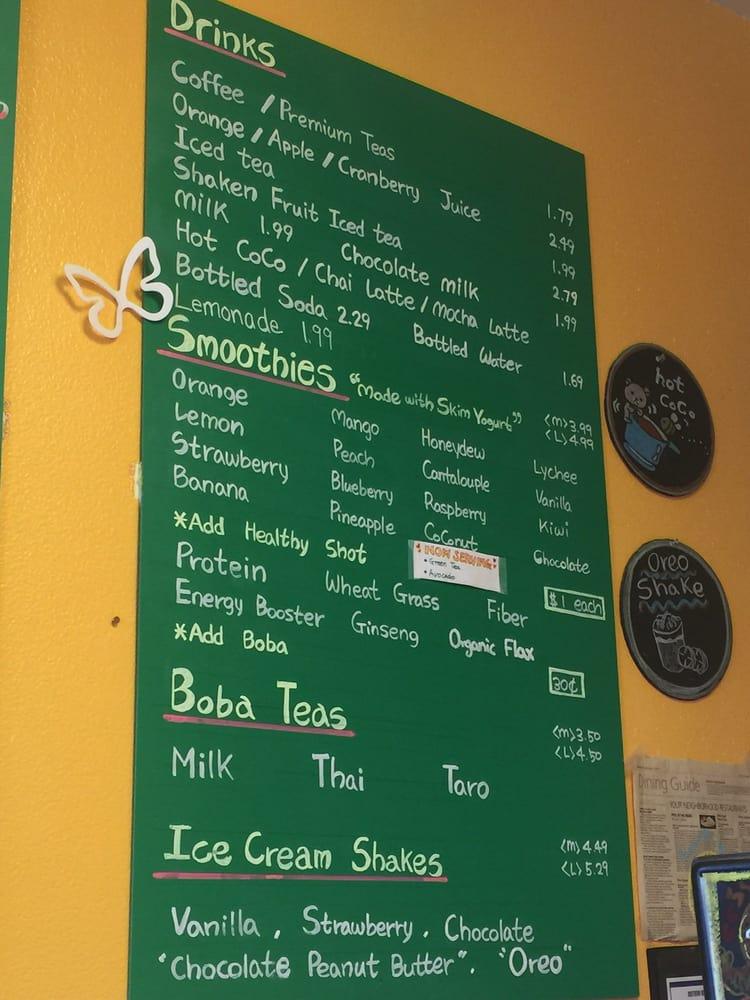 Drinks
Coffee / Premium Teas 1.79
Orange / Apple / Cranberry Juice 2.49
Iced tea 1.99
Shaken Fruit Iced tea 2.79
milk 1.99 Chocolate milk 1.99
Hot CoCo / Chai Latte / Mocha Latte
Bottled Soda 2.29 Bottled Water 1.69
Lemonade 1.99
Smoothies "Made with Skim Yogurt" <m>3.99
<L>4.99
Orange Mango Honeydew Lychee
Lemon Peach Cantaloupe Vanilla
Strawberry Blueberry Raspberry Kiwi
Banana Pineapple CoConut Chocolate
NOW SERVING:
• Green Tea
• Avocado
*Add Healthy Shot $1 each
Protein Wheat Grass Fiber
Energy Booster Ginseng Organic Flax
*Add Boba 30¢
Boba Teas <m>3.50
<L>4.50
Milk Thai Taro
Ice Cream Shakes <m>4.49
<L>5.29
Vanilla, Strawberry, Chocolate
"Chocolate Peanut Butter". "Oreo"
hot
CoCo
Oreo
Shake
Dining Guide
YOUR NEIGHBORHOOD RESTAURANTS